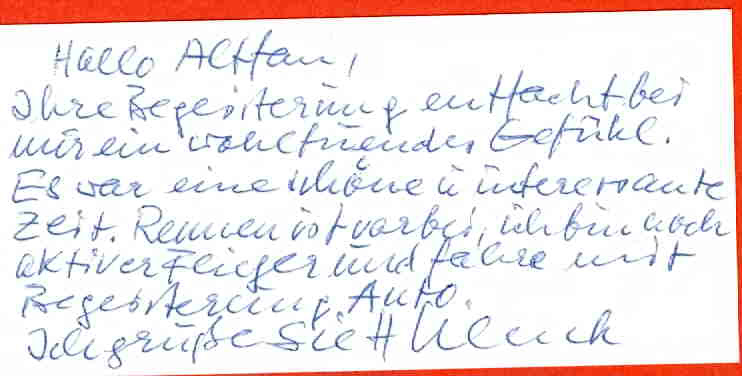 Hallo Altfan,
Ihre Begeisterung entfacht bei
mir ein wohltuendes Gefühl.
Es war eine schöne u interessante
Zeit. Rennen ist vorbei, ich bin noch
aktiver Flieger und fahre mit
Begeisterung Auto.
Ich grüße Sie H